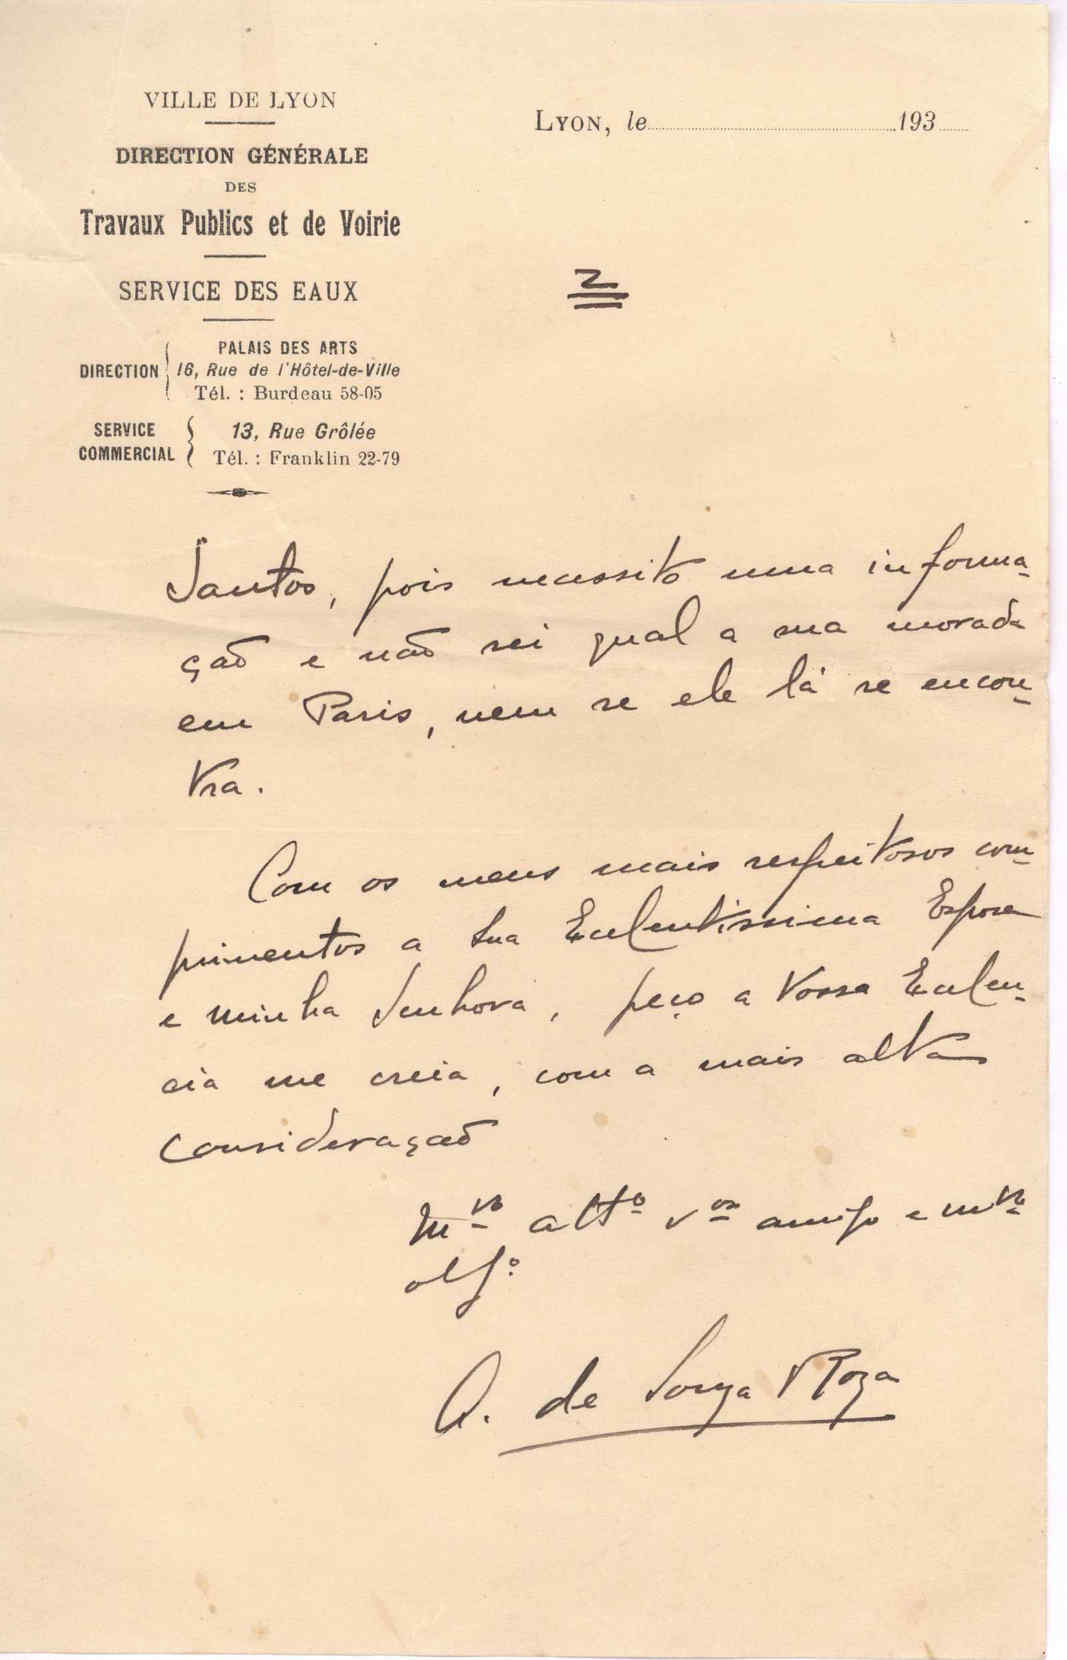 VILLE DE LYON
DIRECTION GÉNÉRALE
DES
Travaux Publics et de Voirie
SERVICE DES EAUX
DIRECTION
PALAIS DES ARTS
16, Rue de l'Hôtel-de-Ville
Tél. : Burdeau 58-05
SERVICE COMMERCIAL
13, Rue Grôlée
Tél. : Franklin 22-79
LYON, le 193
2
Santos, pois necessito uma informa-
ção e não sei qual a sua morada
em Paris, nem se ele lá se encon-
tra.
Com os meus mais respeitosos com-
primentos a Sua Excelentissima Esposa
e minha Senhora, peço a Vossa Excelen-
cia me creia, com a mais alta
consideração
M.to att.o v.or amigo e m.to
obg.o
A. de Souza Roza